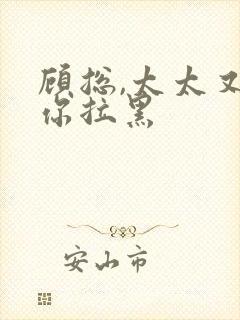 顾总,太太又
你拉黑
安山市